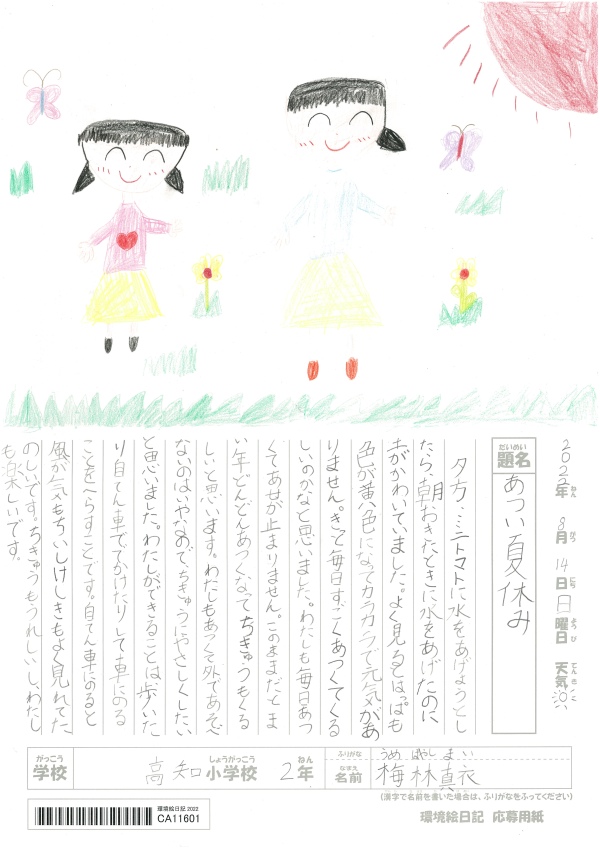 2022年ねん 8月がつ 14日にち 日曜日ようび 天気てんき
題名だいめい
あつい夏休み
夕方、ミニトマトに水をあげようとし
たら、朝おきたときに水をあげたのに
土がかわいていました。よく見るとはっぱも
色が黄色になってカラカラで元気があ
りません。きっと毎日すごくあつくてくる
しいのかなと思いました。わたしも毎日あつ
くてあせが止まりません。このままだとま
い年どんどんあつくなってちきゅうもくる
しいと思います。わたしもあつくて外であそべ
ないのはいやなので、ちきゅうにやさしくしたい
と思いました。わたしができることは歩いた
り自てん車ででかけたりして車にのる
ことをへらすことです。自てん車にのると
風が気もちいいしけしきもよく見れてた
のしいです。ちきゅうもうれしいし、わたし
も楽しいです。
学校がっこう 高知小学校しょうがっこう 2年ねん
ふりがな うめばやし まい
名前なまえ 梅林真衣
(漢字で名前を書いた場合は、ふりがなをふってください)
環境絵日記 2022
CA11601
環境絵日記 応募用紙